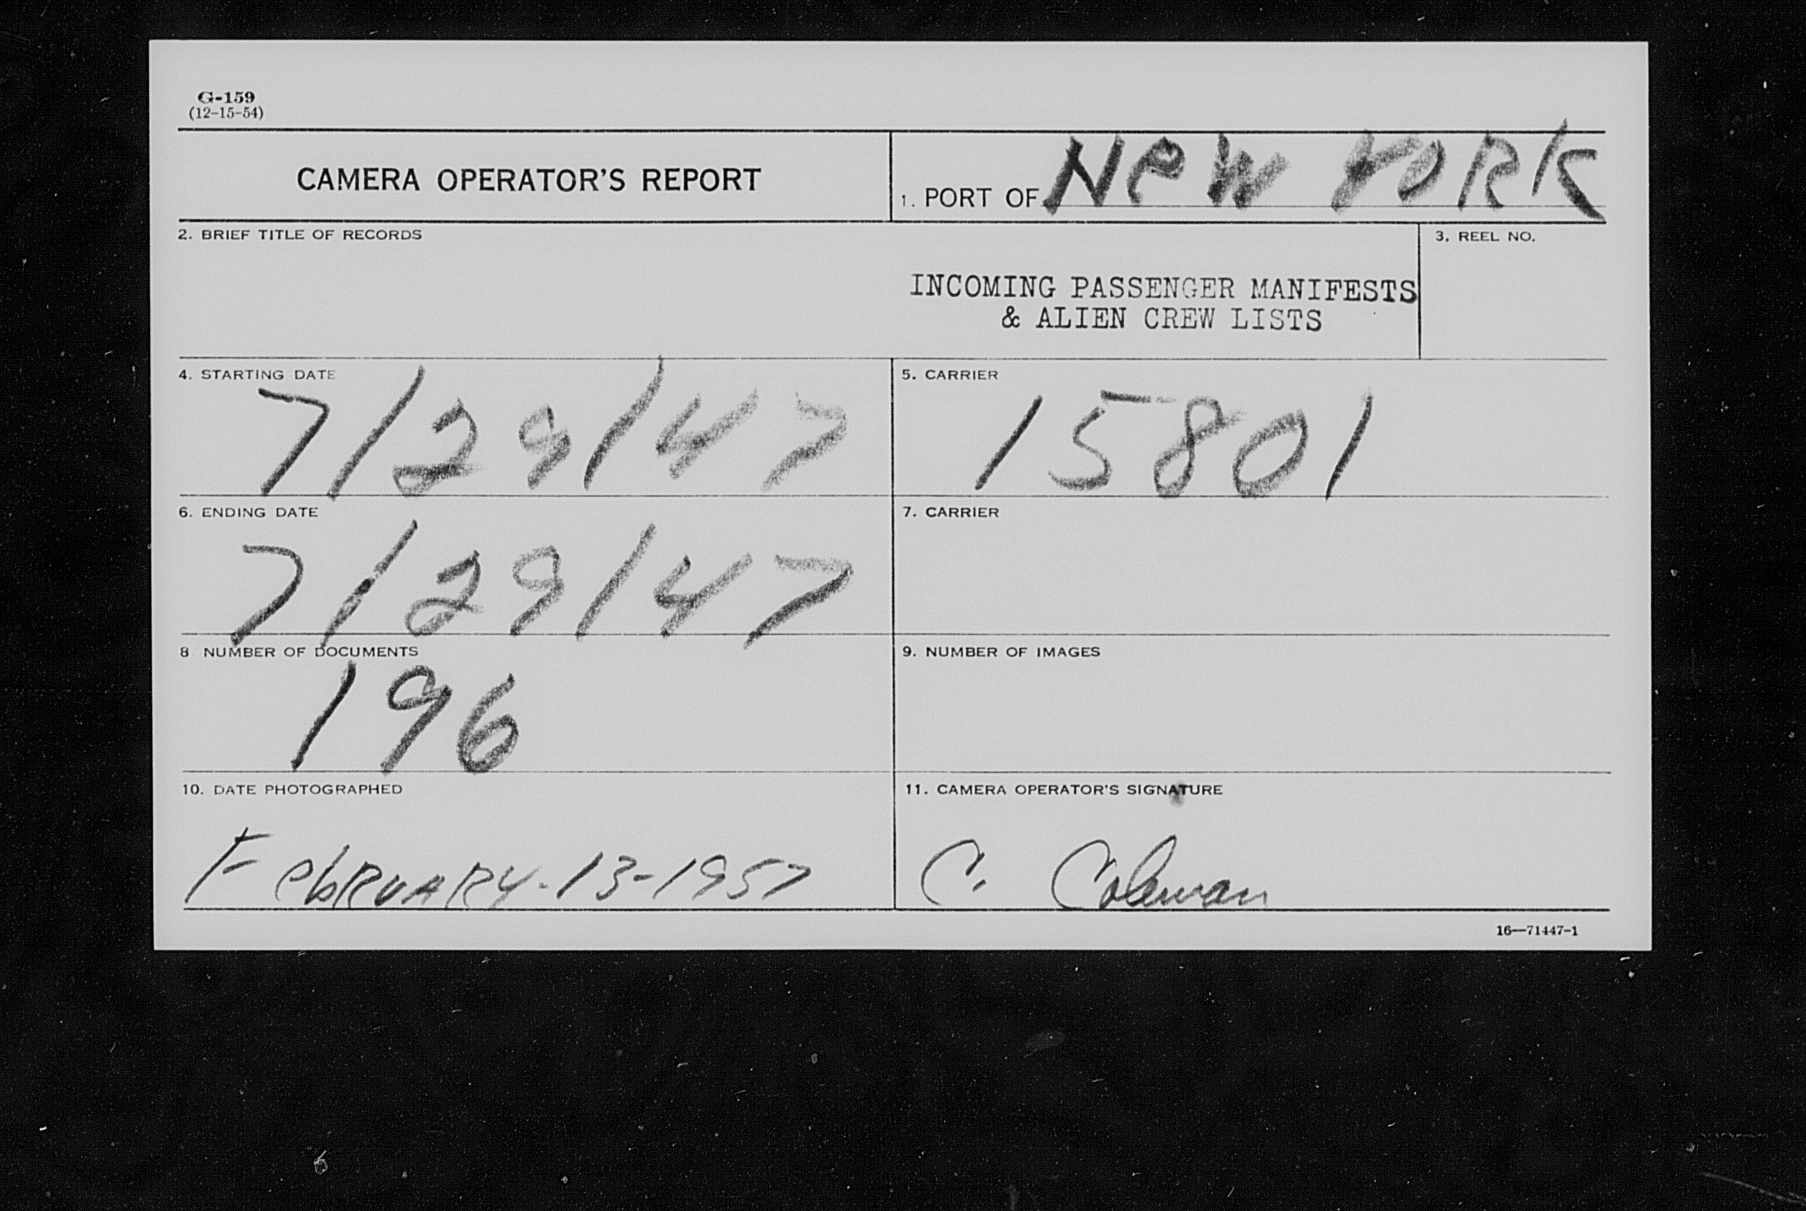 G-159
(12-15-54)
CAMERA OPERATOR'S REPORT
1. PORT OF New YORK
2. BRIEF TITLE OF RECORDS
3. REEL NO.
INCOMING PASSENGER MANIFESTS
& ALIEN CREW LISTS
4. STARTING DATE
7/29/47
5. CARRIER
15801
6. ENDING DATE
7/29/47
7. CARRIER
8 NUMBER OF DOCUMENTS
196
9. NUMBER OF IMAGES
10. DATE PHOTOGRAPHED
FebRUARY-13-1957
11. CAMERA OPERATOR'S SIGNATURE
C. Coleman
16—71447-1